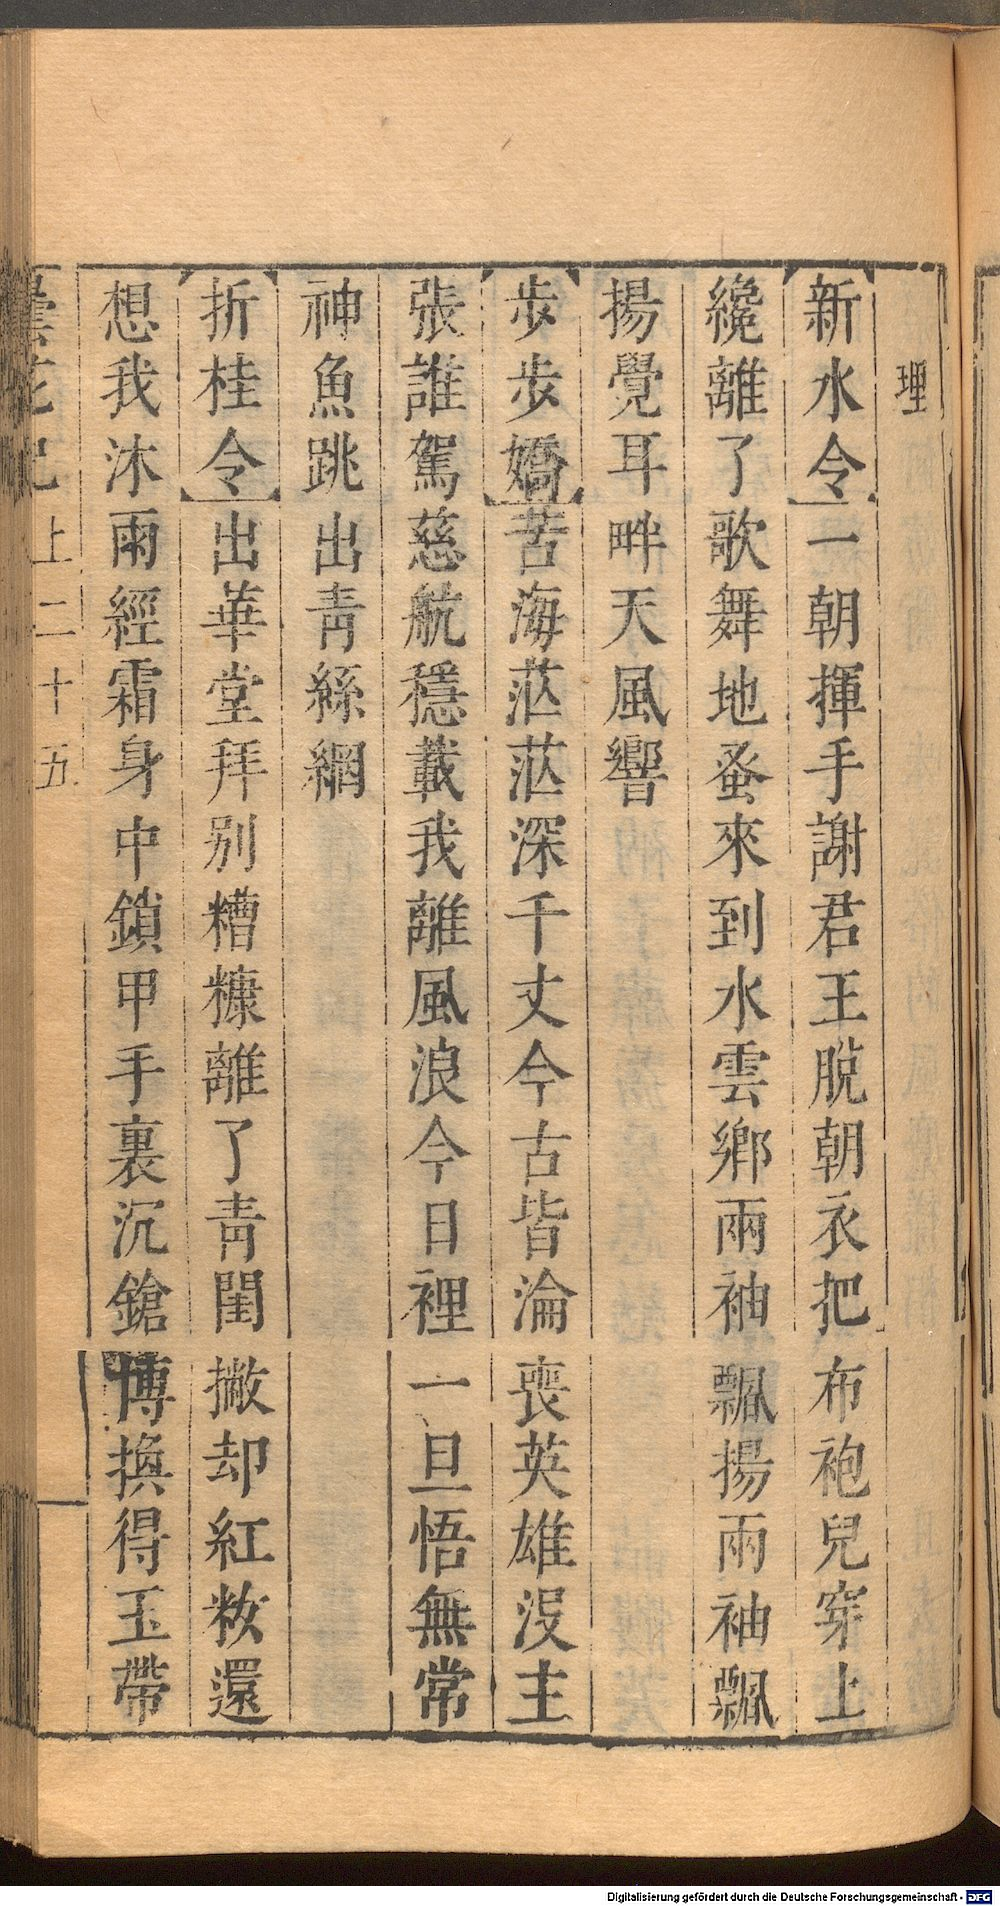 理
【新水令】一朝揮手謝君王脫朝衣把布袍兒穿上
纔離了歌舞地蚤來到水雲鄉兩袖飄揚兩袖飄
揚覺耳畔天風響
【步步嬌】苦海茫茫深千丈今古皆淪喪英雄沒主
張誰駕慈航穩載我離風浪今日裡一旦悟無常
神魚跳出青絲網
【折桂令】出華堂拜別糟糠離了青閨撇却紅粧還
想我沐雨經霜身中鎖甲手裏沉鎗博換得玉帶
曇花記 上二十五
Digitalisierung gefördert durch die Deutsche Forschungsgemeinschaft - DFG